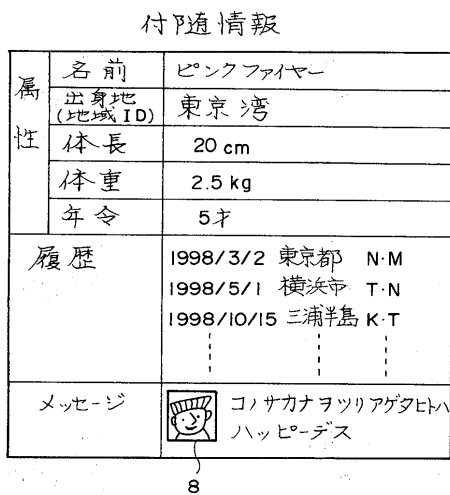 付随情報
属性
名前 ピンクファイヤー
出身地
(地域ID) 東京湾
体長 20cm
体重 2.5kg
年令 5才
履歴 1998/3/2 東京都 N·M
1998/5/1 横浜市 T·N
1998/10/15 三浦半島 K·T
メッセージ コノサカナヲツリアゲタヒトハ
ハッピーデス
8